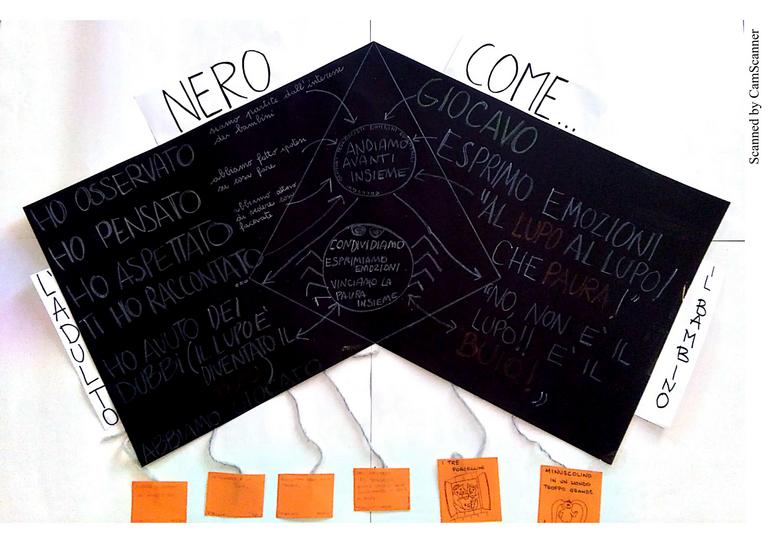 NERO
COME...
siamo partite dall'interesse
dei bambini
HO OSSERVATO
abbiamo fatto ipotesi
su cosa fare
HO PENSATO
abbiamo atteso
di vedere cosa
facevate
HO ASPETTATO
TI HO RACCONTATO
...
HO AVUTO DEI
DUBBI (IL LUPO È
DIVENTATO IL
)
ABBIAMO GIOCATO
L'ADULTO
ANDIAMO
AVANTI
INSIEME
CONDIVIDIAMO
ESPRIMIAMO
EMOZIONI
VINCIAMO LA
PAURA
INSIEME
GIOCAVO
ESPRIMO EMOZIONI
"AL LUPO AL LUPO!
CHE PAURA!
"NO, NON E' IL
LUPO!! E' IL
BUIO!
"
IL BAMBINO
I TRE
PORCELLINI
MINUSCOLINO
IN UN MONDO
TROPPO GRANDE
Scanned by CamScanner